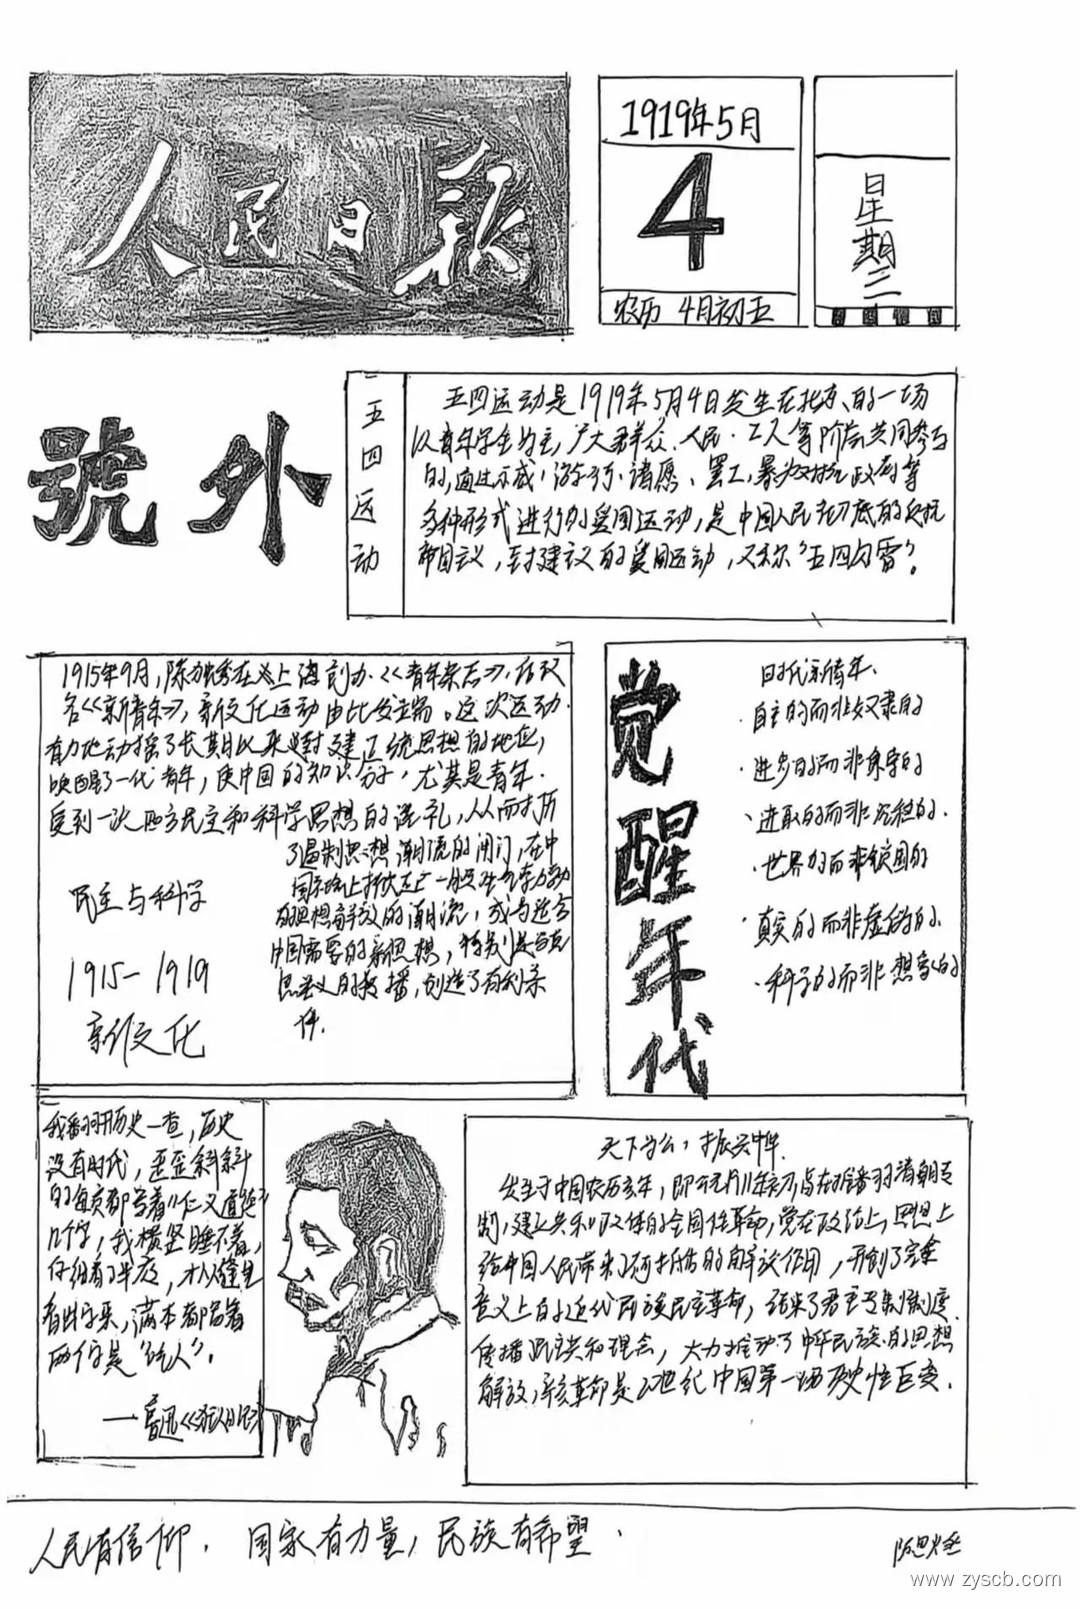 人民日报
1919年5月
4
农历 4月初五
星期三
號外
五四运动
五四运动是1919年5月4日发生在北京的一场
以青年学生为主,广大群众、人民、工人等阶层共同参与
的,通过示威、游行、请愿、罢工、暴力对抗政府等
多种形式进行的爱国运动,是中国人民彻底的反抗
帝国主义,封建主义的爱国运动,又称"五四风雷"。
1915年9月,陈独秀在上海创办《青年杂志》,后改
名《新青年》,新文化运动由此发端。这次运动
有力地动摇了长期以来封建正统思想的地位,
唤醒了一代青年,使中国的知识分子,尤其是青年
受到一次西方民主和科学思想的洗礼,从而打开
了遏制思想潮流的闸门,在中
的思想解放的潮流,
中国需要的新思想,特别是马克
思主义的传播,创造了有利条
件.
民主与科学
1915-1919
新文化
觉醒年代
时代新青年.
·自主的而非奴隶的
·进步的而非保守的
·进取的而非退隐的.
·世界的而非锁国的
·真实的而非虚的的.
·科学的而非想象的
我翻开历史一查,历史
没有时代,歪歪斜斜
的每页都写着"仁义道德"
几个字,我横竖睡不着,
仔细看了半夜,才从缝里
看出字来,满本都写着
两个字是"吃人"。
——鲁迅《狂人日记》
天下为公,振兴中华.
制,建立共和政体的全国性革命,党在政治上,思想上
给中国人民带来了不可打估的解放作用,开创了完全
意义上的近代民族民主革命,结束了君主专制制度.
传播民主共和理念,大力推动了中华民族的思想
解放,辛亥革命是20世纪中国第一场历史性巨变.
人民有信仰. 国家有力量,民族有希望.
www.zyscb.com